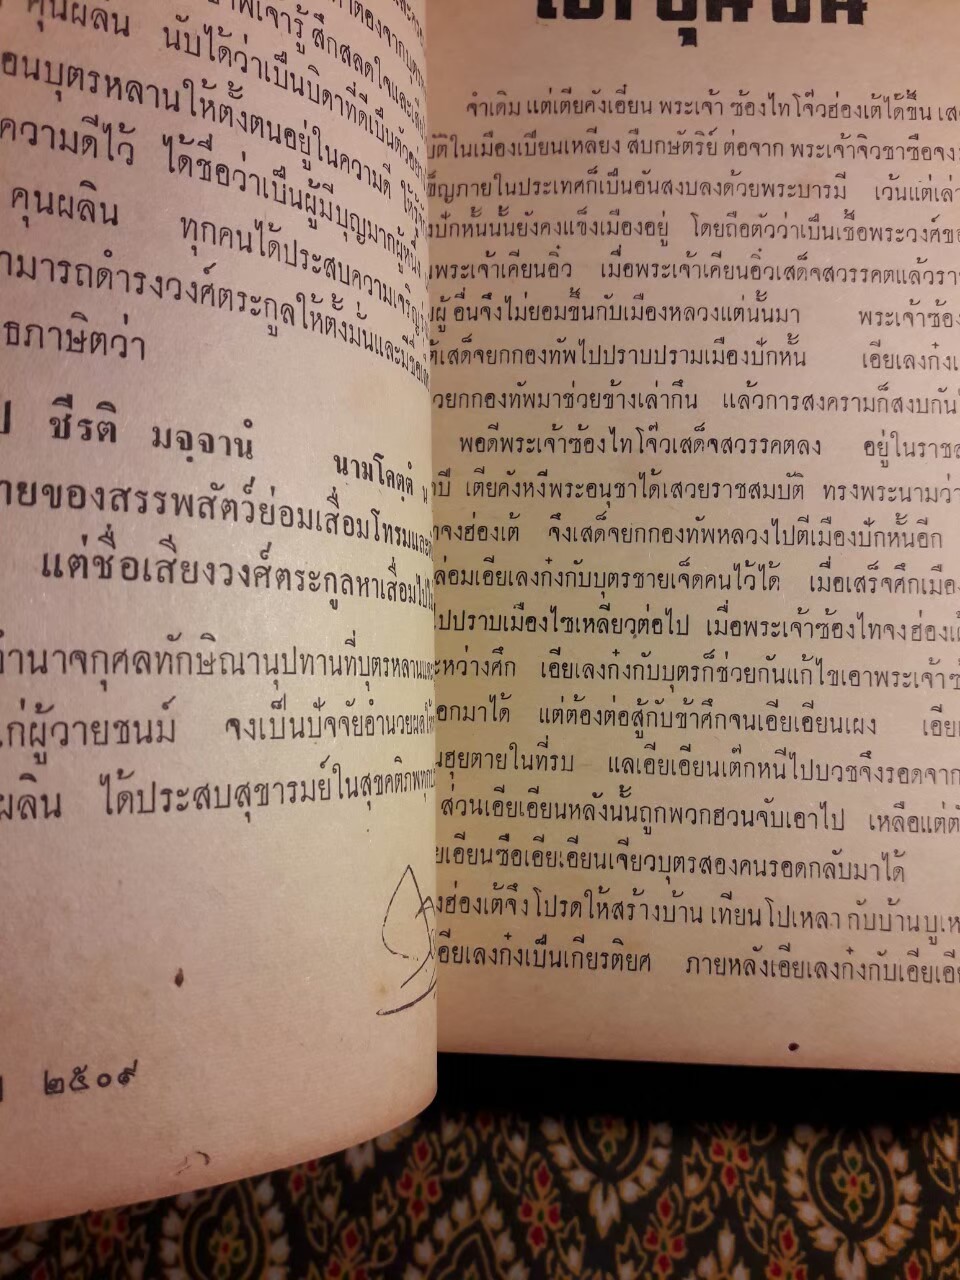 คุนผลิน นับได้ว่าเป็นบิดาที่ดีเป็นตัวอย่าง
อนบุตรหลานให้ตั้งตนอยู่ในความดี ให้รู้จัก
ความดีไว้ ได้ชื่อว่าเป็นผู้มีบุญมากผู้หนึ่ง
คุนผลิน ทุกคนได้ประสบความเจริญ
ามารถดำรงวงศ์ตระกูลให้ตั้งมั่นและมีชื่อเสีย
ธภาษิตว่า
ป ชีรติ มจฺจานํ นามโคตฺตํ น
ายของสรรพสัตว์ย่อมเสื่อมโทรมและ
แต่ชื่อเสียงวงศ์ตระกูลหาเสื่อมไปไม่
อำนาจกุศลทักษิณานุปทานที่บุตรหลานและ
ก่ผู้วายชนม์ จงเป็นปัจจัยอำนวยผลให้
ผลิน ได้ประสบสุขารมย์ในสุขคติภพทุก
๒๕๐๙
จำเดิม แต่เตียคังเอี่ยน พระเจ้า ซ้องไทโจ๊วฮ่องเต้ได้ขึ้น เสว
บัติในเมืองเปียนเหลียง สืบกษัตริย์ ต่อจาก พระเจ้าจิวซาซือจง
ข็ญภายในประเทศก็เป็นอันสงบลงด้วยพระบารมี เว้นแต่เล่า
งปักหั้นนั้นยังคงแข็งเมืองอยู่ โดยถือตัวว่าเป็นเชื้อพระวงศ์ขอ
นพระเจ้าเคียนอิ๋ว เมื่อพระเจ้าเคียนอิ๋วเสด็จสวรรคตแล้วรา
ผู้อื่นจึงไม่ยอมขึ้นกับเมืองหลวงแต่นั้นมา พระเจ้าซ้อง
ต้เสด็จยกกองทัพไปปราบปรามเมืองปักหั้น เอียเลงก๋งเ
วยกกองทัพมาช่วยข้างเล่ากึน แล้วการสงครามก็สงบกัน
พอดีพระเจ้าซ้องไทโจ๊วเสด็จสวรรคตลง อยู่ในราชส
าปี เตียคังหงีพระอนุชาได้เสวยราชสมบัติ ทรงพระนามว่า
าจงฮ่องเต้ จึงเสด็จยกกองทัพหลวงไปตีเมืองปักหั้นอีก
ล่อมเอียเลงก๋งกับบุตรชายเจ็ดคนไว้ได้ เมื่อเสร็จศึกเมือง
ไปปราบเมืองไซเหลียวต่อไป เมื่อพระเจ้าซ้องไทจงฮ่องเต้
ะหว่างศึก เอียเลงก๋งกับบุตรก็ช่วยกันแก้ไขเอาพระเจ้าซ้
อกมาได้ แต่ต้องต่อสู้กับข้าศึกจนเอียเอียนเผง เอีย
นฮุยตายในที่รบ แลเอียเอียนเต๊กหนีไปบวชจึงรอดจาก
ส่วนเอียเอียนหลังนั้นถูกพวกฮวนจับเอาไป เหลือแต่ตั
ยเอียนซือเอียเอียนเจียวบุตรสองคนรอดกลับมาได้
งฮ่องเต้จึงโปรดให้สร้างบ้าน เทียนโปเหลา กับบ้าน บูเห
อียเลงก๋งเป็นเกียรติยศ ภายหลังเอียเลงก๋งกับเอียเอีย